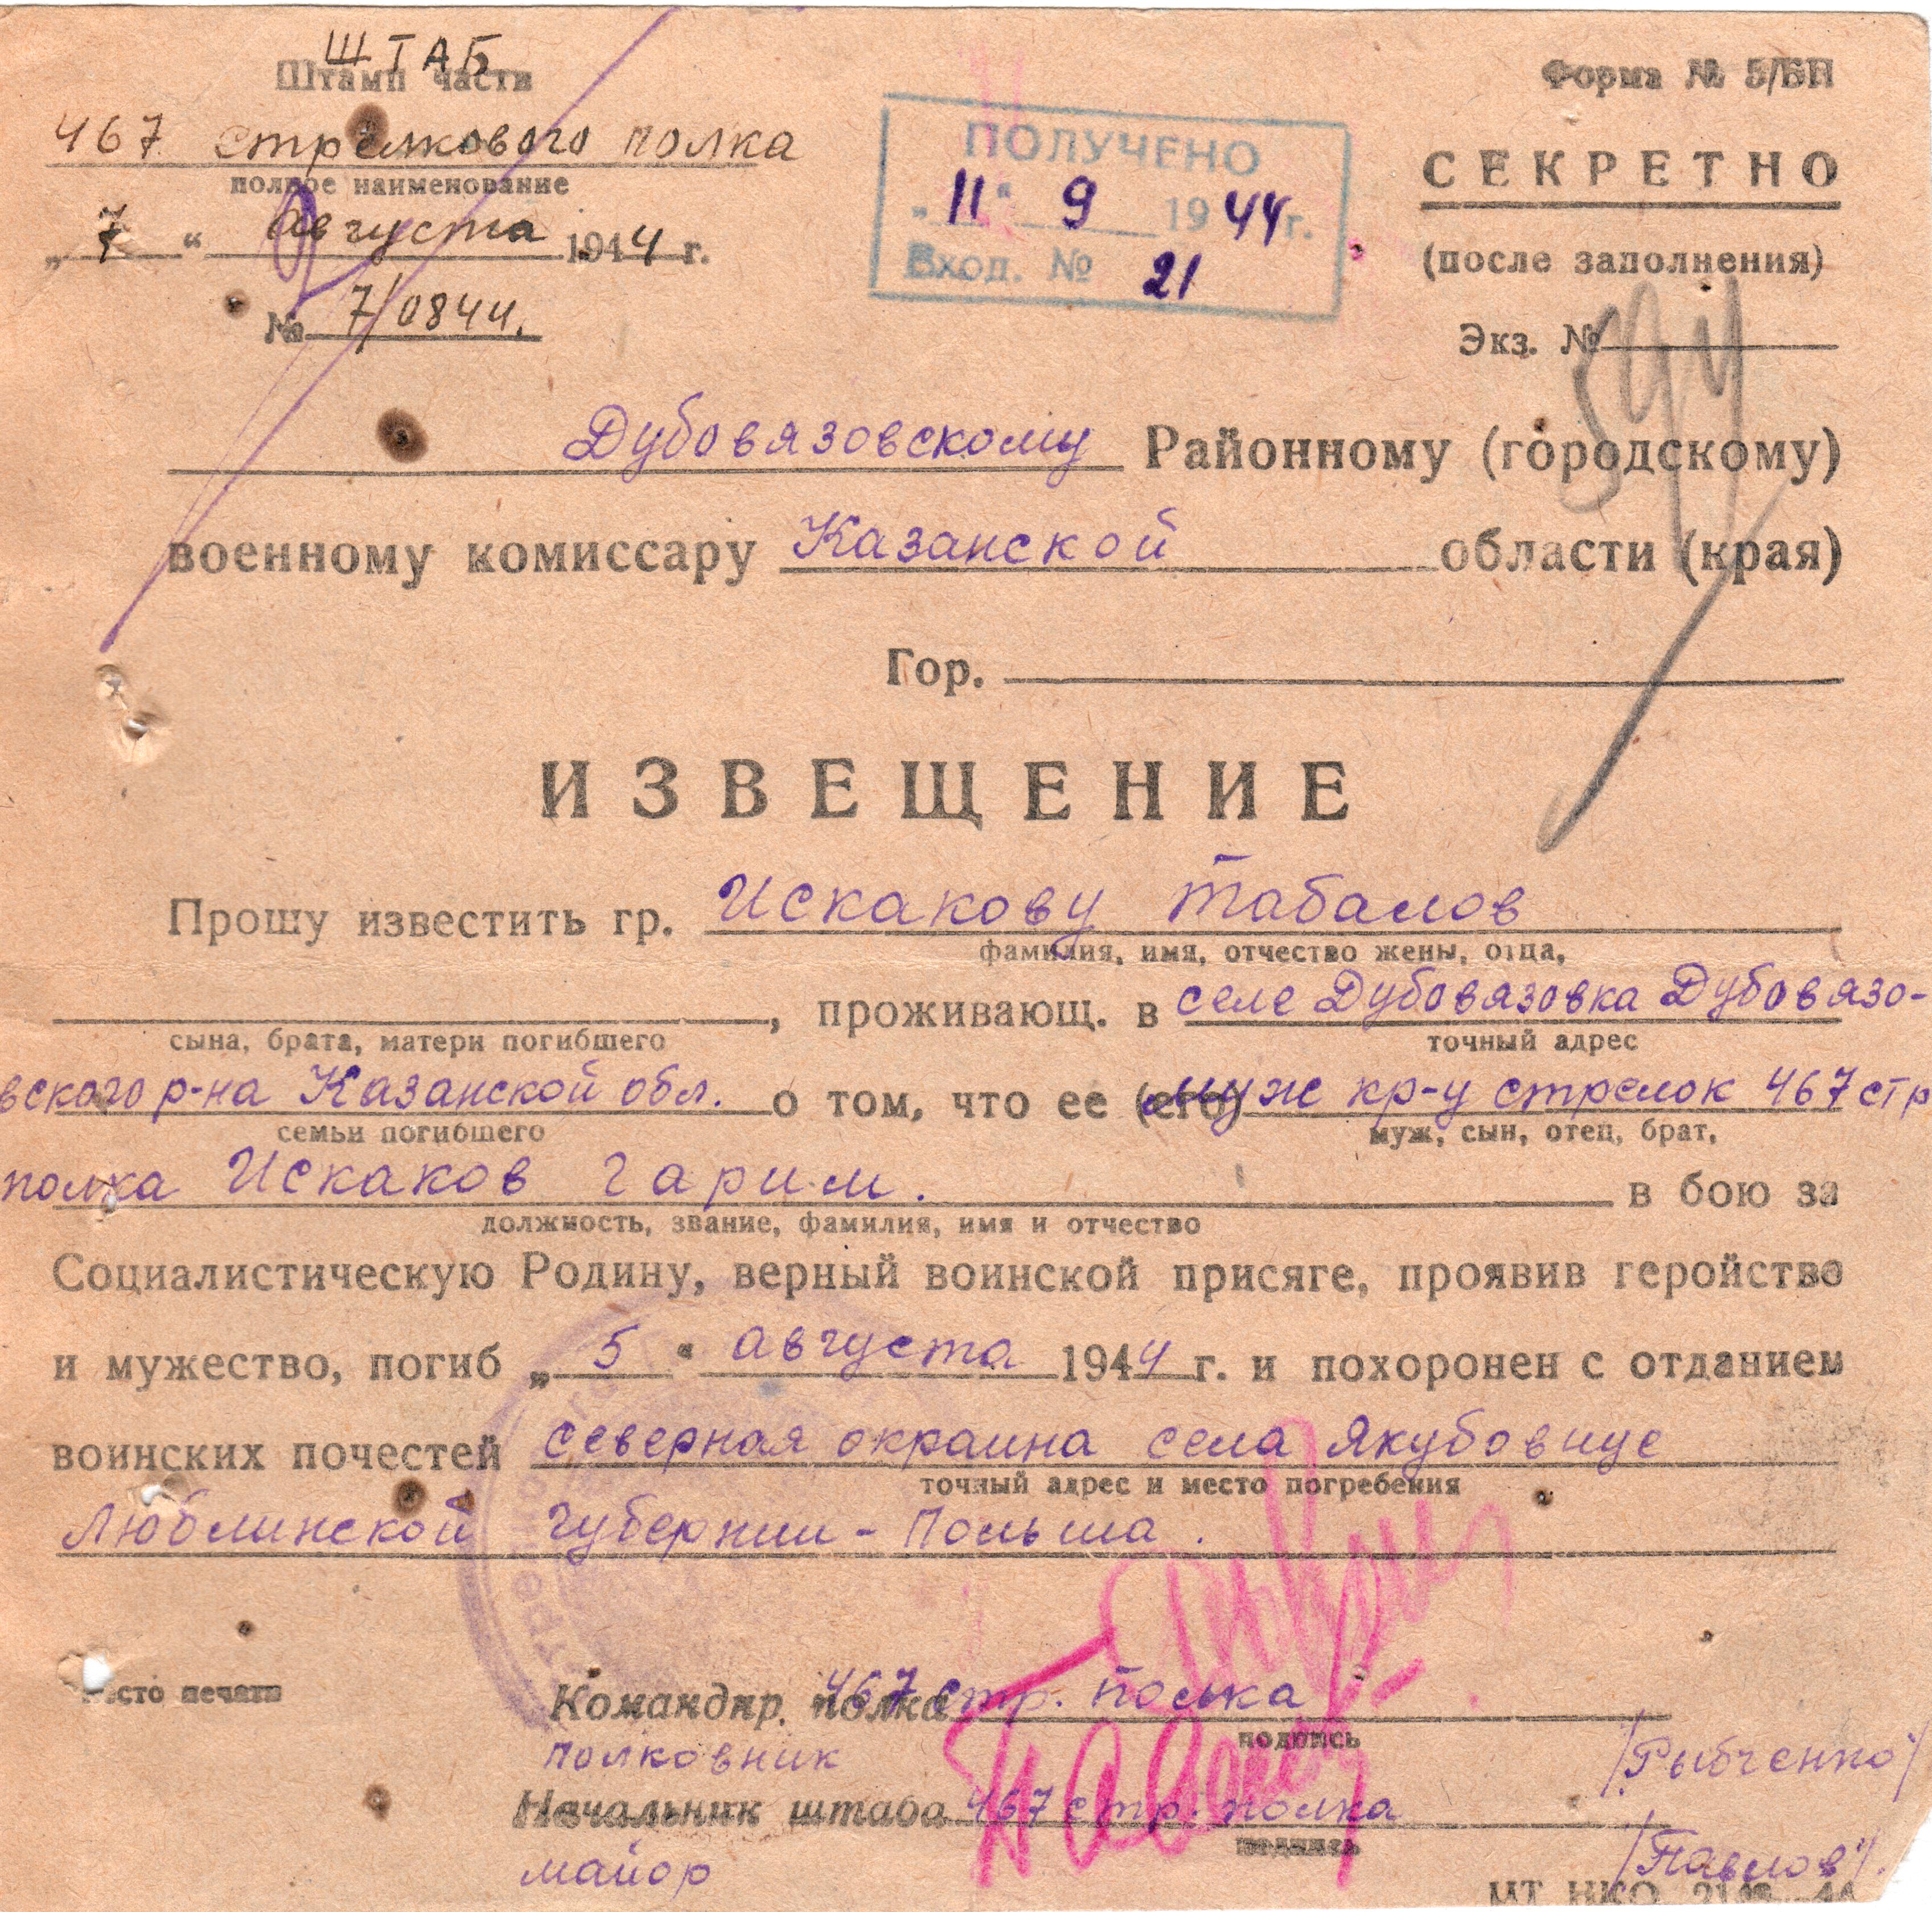 ШТАБ
Штамп части
467 стрелкового полка
полное наименование
„7“ августа 1944 г.
№ 7/0844.
ПОЛУЧЕНО
„11“ 9 1944 г.
Вход. № 21
Форма № 5/БП
СЕКРЕТНО
(после заполнения)
Экз. №
Дубовязовскому Районному (городскому)
военному комиссару Казанской области (края)
Гор.
ИЗВЕЩЕНИЕ
Прошу известить гр. Искакову Табалов
фамилия, имя, отчество жены, отца,
, проживающ. в селе Дубовязовка Дубовязо-
сына, брата, матери погибшего точный адрес
вского р-на Казанской обл. о том, что ее (его) муж кр-ц стрелок 467 стр
семьи погибшего муж, сын, отец, брат,
полка Искаков Гарим. в бою за
должность, звание, фамилия, имя и отчество
Социалистическую Родину, верный воинской присяге, проявив геройство
и мужество, погиб „5“ августа 1944 г. и похоронен с отданием
воинских почестей северная окраина села Якубовице
точный адрес и место погребения
Люблинской губернии - Польша.
Место печати
Командир. полка 467 стр. полка
подпись
полковник /Рыбченко/
Начальник штаба 467 стр. полка
подпись
майор /Павлов/.
Павлов